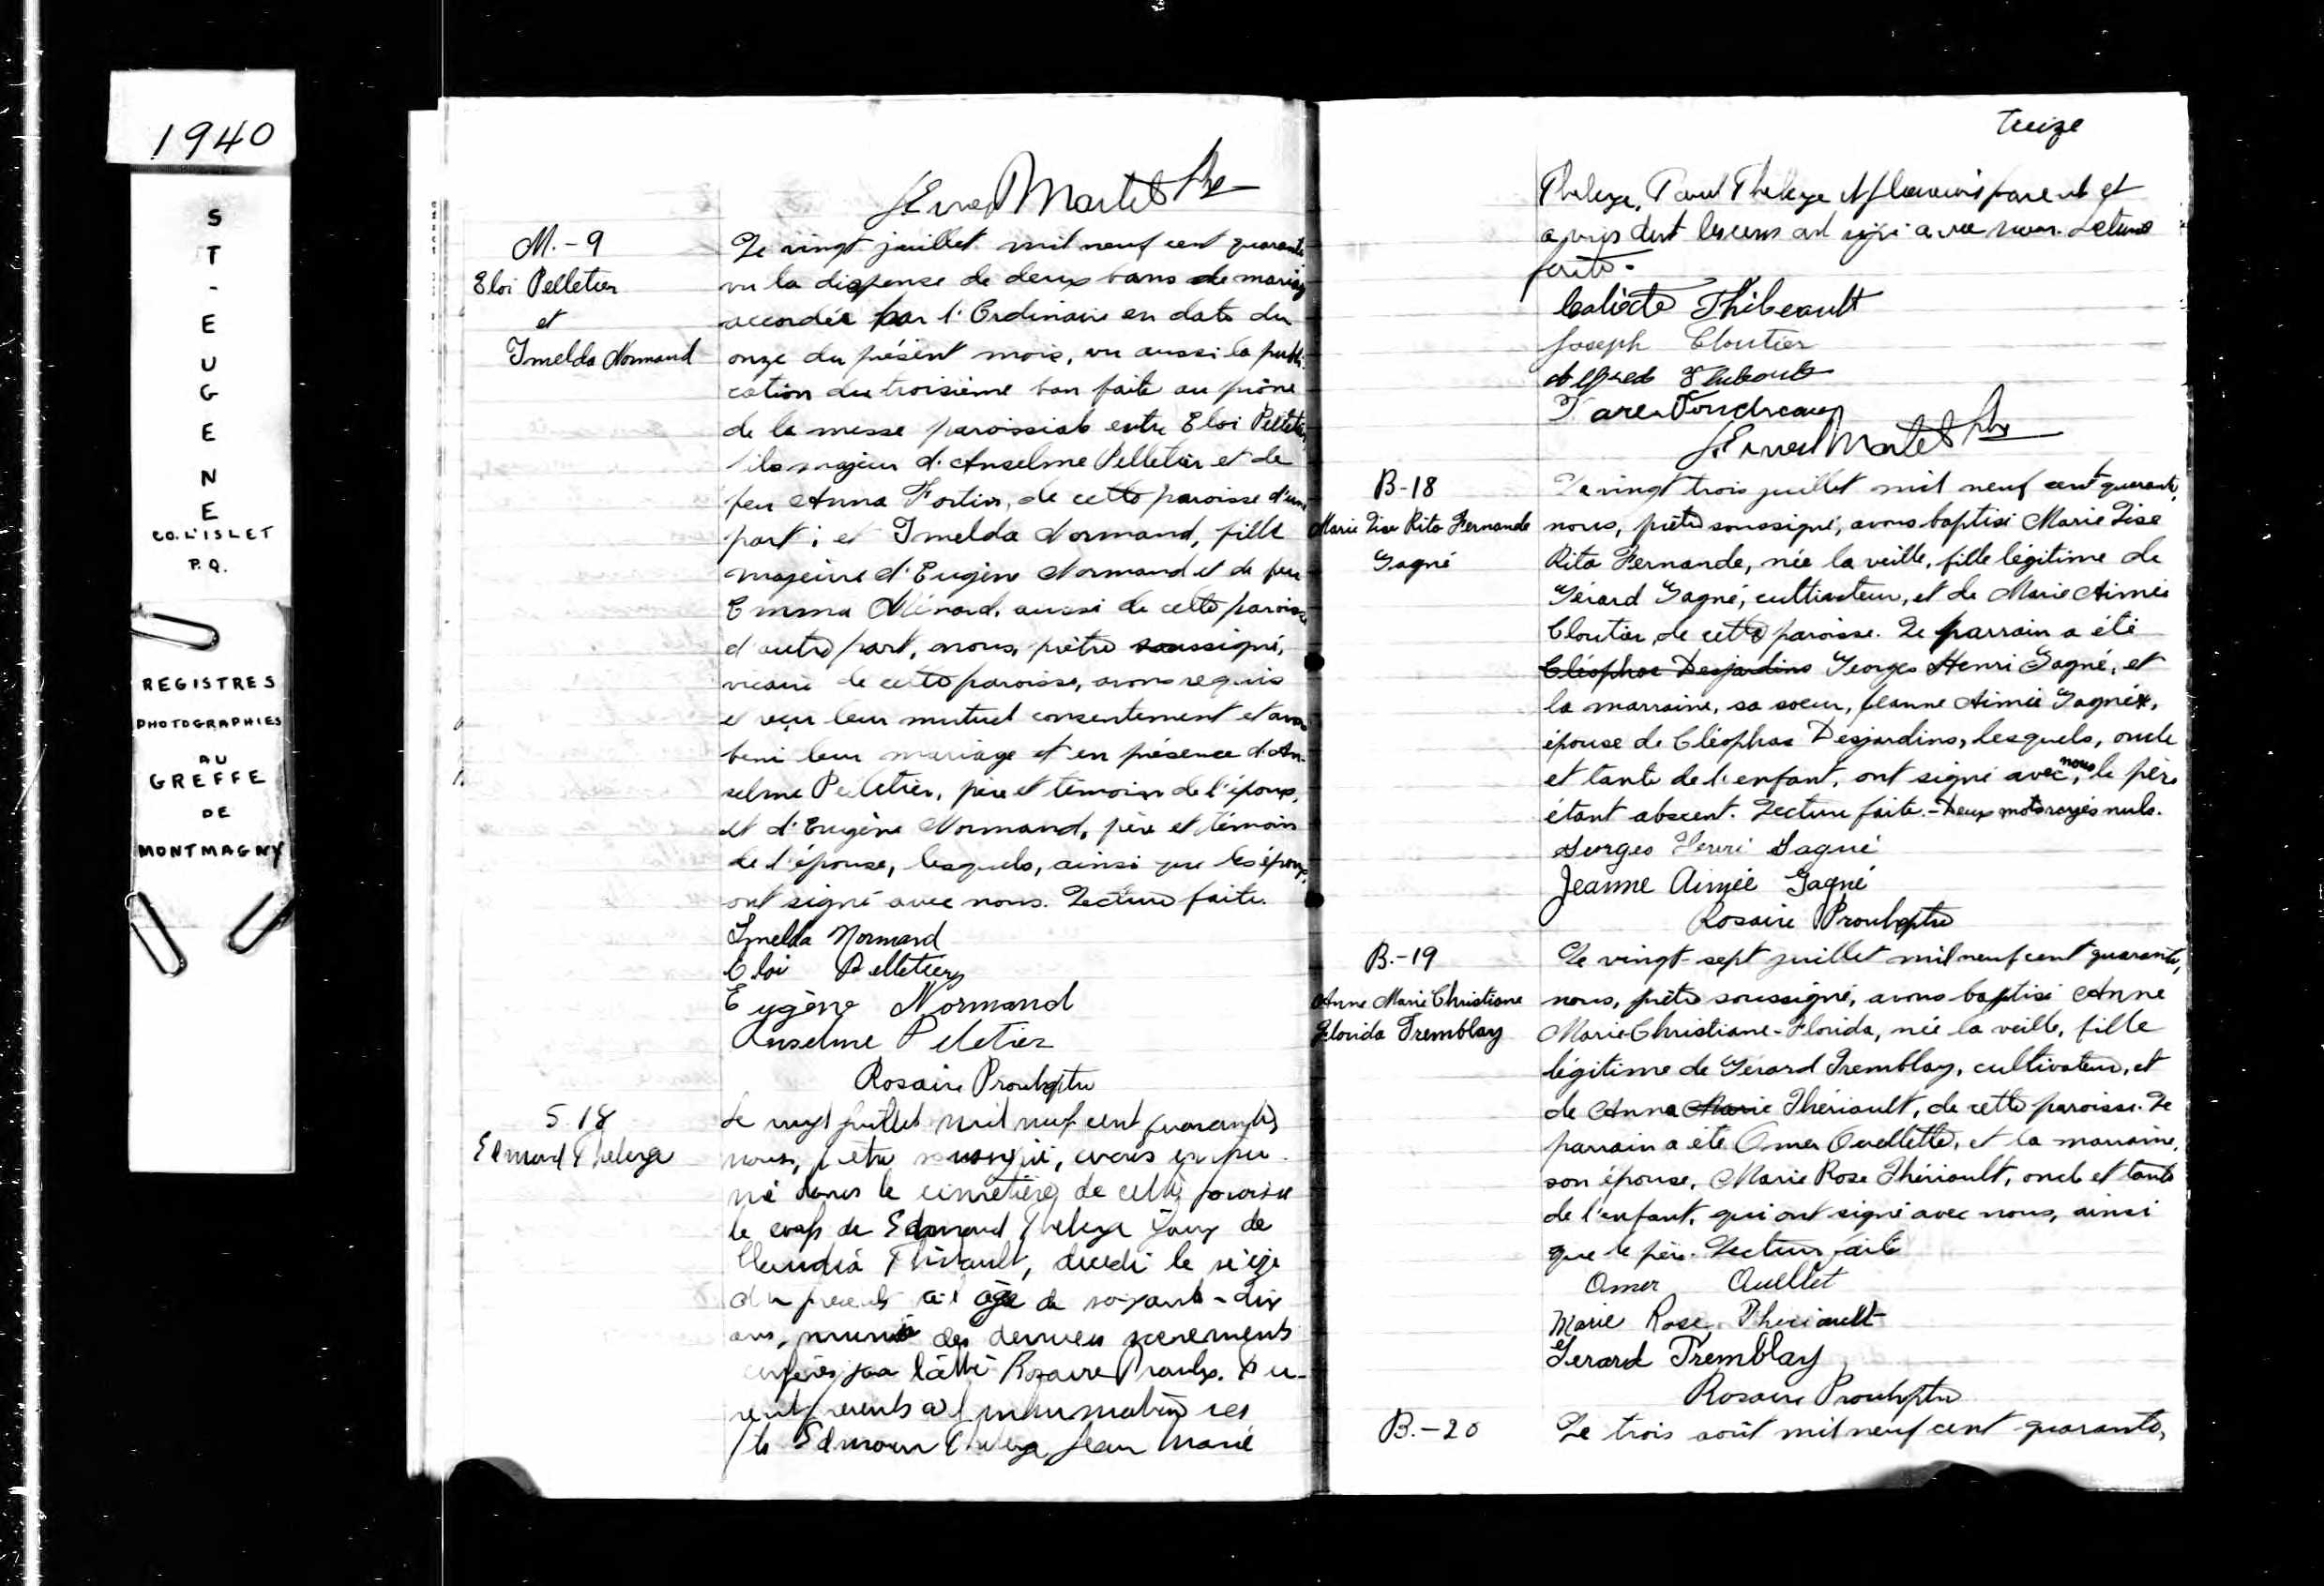 1940
ST-EUGENE
CO. L'ISLET
P.Q.
REGISTRES
PHOTOGRAPHIES
AU
GREFFE
DE
MONTMAGNY
Martel Ptre
M.-9
Eloi Pelletier
et
Imelda Normand
Le vingt juillet mil neuf cent quarante
vu la dispense de deux bans de mariage
accordée par l'Ordinaire en date du
onze du présent mois, vu aussi la publi-
cation du troisième ban faite au prône
de la messe paroissiale entre Eloi Pelletier,
fils majeur d'Anselme Pelletier et de
feu Anna Fortin, de cette paroisse d'une
part; et Imelda Normand, fille
majeure d'Eugène Normand et de feu
Emma Ménard, aussi de cette paroisse
d'autre part, nous, prêtre soussigné,
vicaire de cette paroisse, avons requis
et reçu leur mutuel consentement et avons
béni leur mariage et en présence d'An-
selme Pelletier, père et témoin de l'époux,
et d'Eugène Normand, père et témoin
de l'épouse, lesquels, ainsi que les époux,
ont signé avec nous. Lecture faite.
Imelda Normand
Eloi Pelletier
Eugène Normand
Anselme Peletier
Rosaire Proulx ptre
S 18
Edmond Theberge
Le vingt juillet mil neuf cent quarante
nous, prêtre soussigné, avons inhu-
mé dans le cimetière de cette paroisse
le corps de Edmond Theberge époux de
Claudia Thibault, décédé le seize
du présent à l'âge de soixante-dix
ans, muni des derniers sacrements
conférés par l'abbé Rosaire Proulx. Fu-
rent présents à l'inhumation ses
fils Edmour Theberge, Jean Marie
treize
Theberge, Paul Theberge et plusieurs parents et
amis dont les uns ont signé avec nous. Lecture
faite.
Calixte Thibeault
Joseph Cloutier
Alfred Thibault
Martel Ptre
B-18
Marie Lise Rita Fernande
Gagné
Le vingt trois juillet mil neuf cent quarante,
nous, prêtre soussigné, avons baptisé Marie Lise
Rita Fernande, née la veille, fille légitime de
Gérard Gagné, cultivateur, et de Marie Aimée
Cloutier, de cette paroisse. Le parrain a été
Cléophas Desjardins Georges Henri Gagné, et
la marraine, sa soeur, Jeanne Aimée Gagné,
épouse de Cléophas Desjardins, lesquels, oncle
et tante de l'enfant, ont signé avec nous, le père
étant absent. Lecture faite.-Deux mots rayés nuls.
Georges Henri Gagné
Jeanne Aimée Gagné
Rosaire Proulx ptre
B.-19
Anne Marie Christiane
Florida Tremblay
Le vingt-sept juillet mil neuf cent quarante,
nous, prêtre soussigné, avons baptisé Anne
Marie-Christiane-Florida, née la veille, fille
légitime de Gérard Tremblay, cultivateur, et
de Anna Marie Thériault, de cette paroisse. Le
parrain a été Omer Ouellette, et la marraine,
son épouse, Marie Rose Thériault, oncle et tante
de l'enfant, qui ont signé avec nous, ainsi
que le père. Lecture faite
Omer Ouellet
Marie Rose Theriault
Gerard Tremblay
Rosaire Proulx ptre
B.-20
Le trois août mil neuf cent quarante,